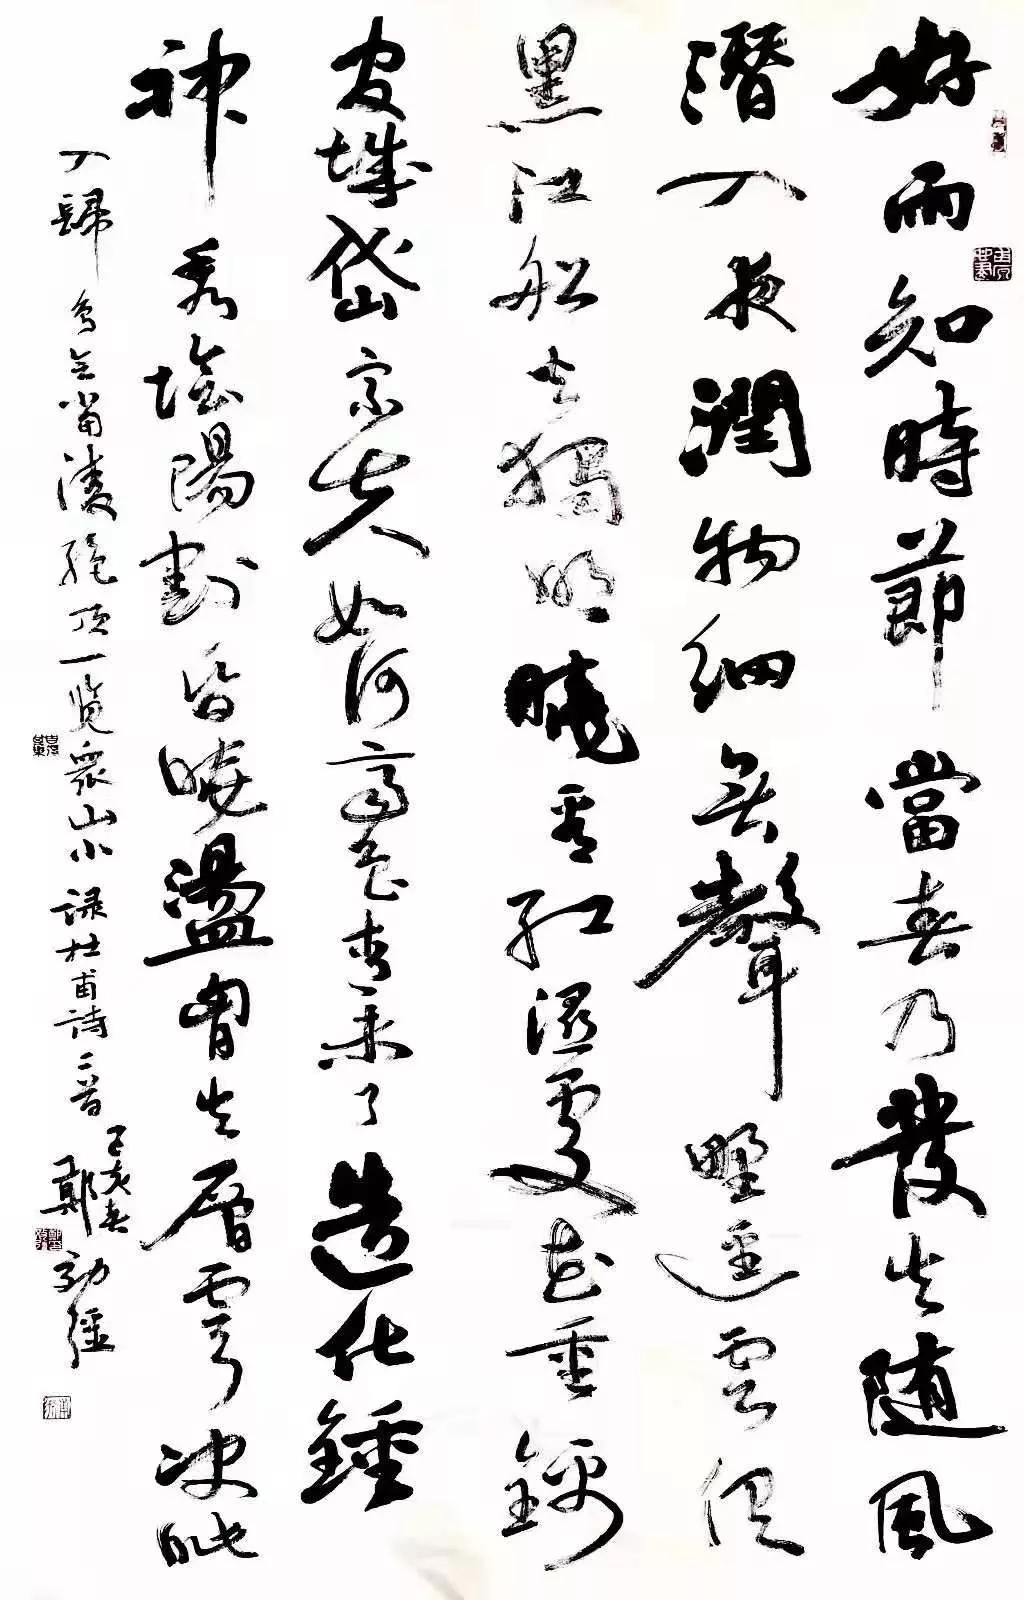 好雨知時節當春乃發生随風
潛入夜潤物細無聲野逕雲俱
黑江船火獨明曉看紅濕處花重錦
官城岱宗夫如何齊魯青未了造化鍾
神秀陰陽割昏曉盪胸生層雲決眦
入歸鳥會當淩絕頂一覽衆山小録杜甫詩二首
己亥春
鄭